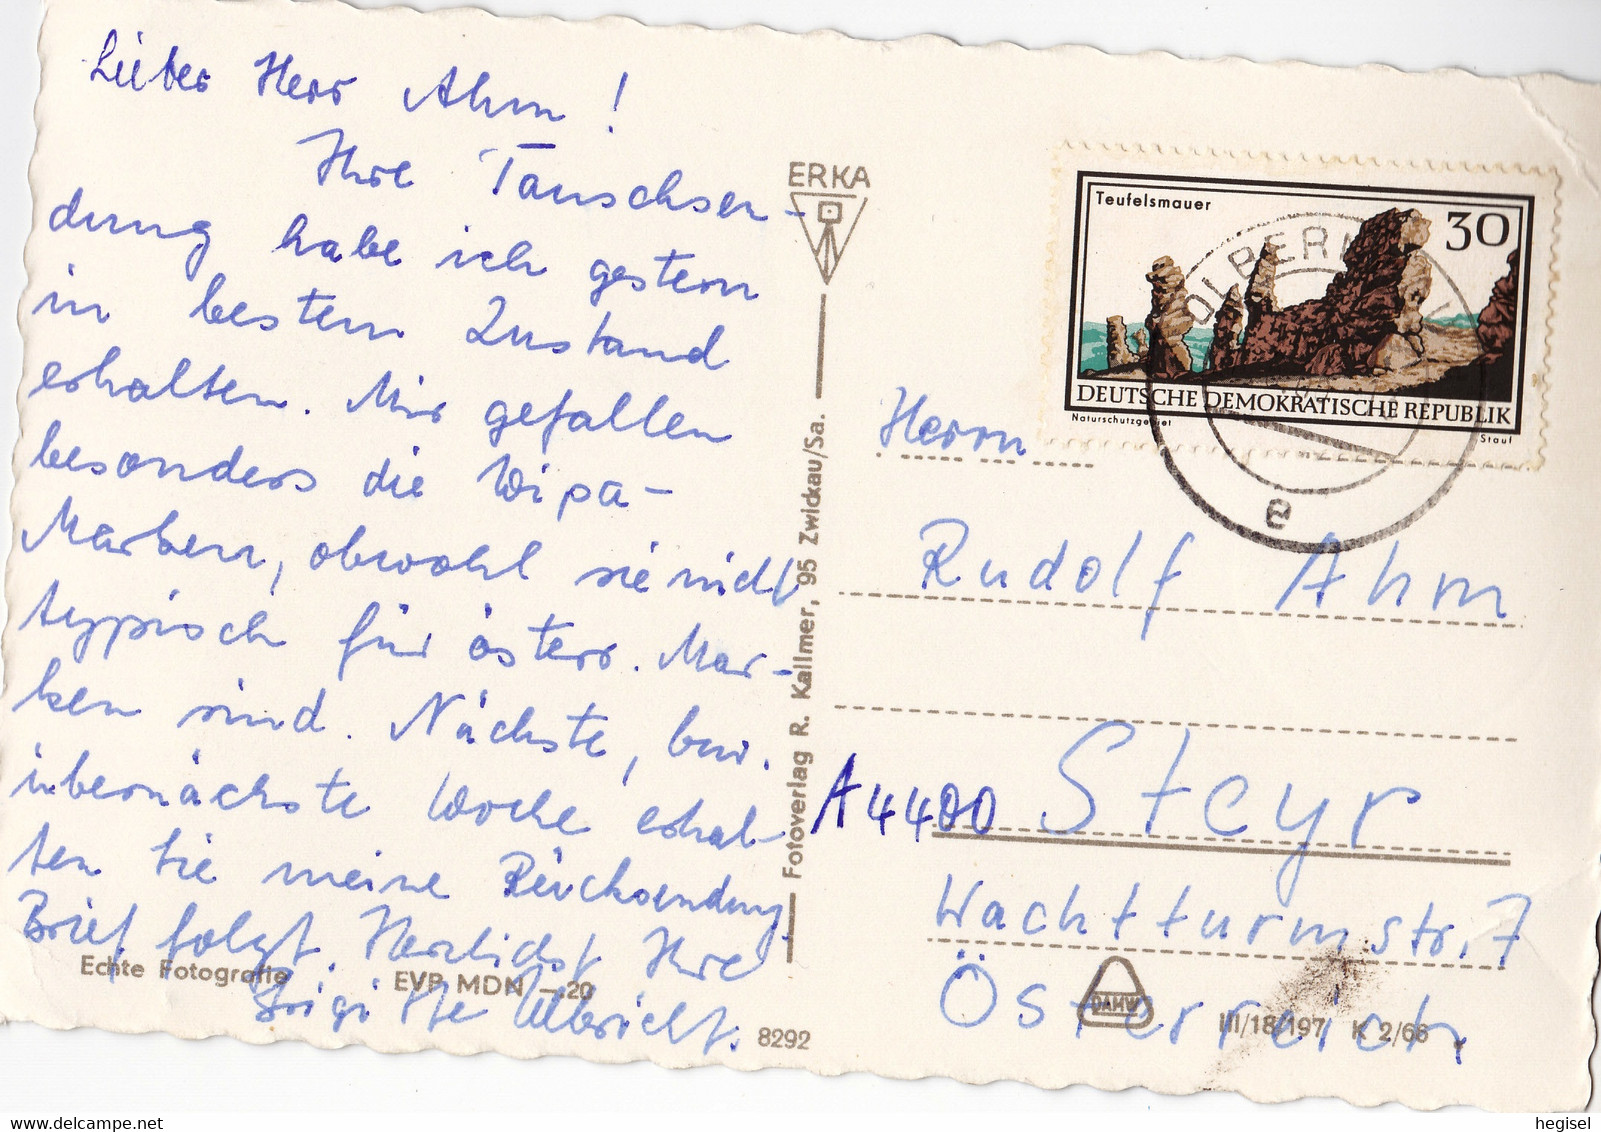 Lieber Herr Ahm!
Ihre Tauschsen-
dung habe ich gestern
in bestem Zustand
erhalten. Mir gefallen
besonders die Wipa-
Marken, obwohl sie nicht
typisch für österr. Mar-
ken sind. Nächste, bzw.
übernächste Woche erhal-
ten Sie meine Rücksendung.
Brief folgt. Herzlichst Ihre
Brigitte Ulbricht.
Echte Fotografie
EVP MDN —.20
8292
ERKA
Fotoverlag R. Kallmer, 95 Zwickau/Sa.
Teufelsmauer
30
DEUTSCHE DEMOKRATISCHE REPUBLIK
Naturschutzgebiet
Stauf
OLBERN
e
Herrn
Rudolf Ahm
A 4400 Steyr
Wachtturmstr. 7
Österreich
DAMW
III/18/197 K 2/66
hegisel